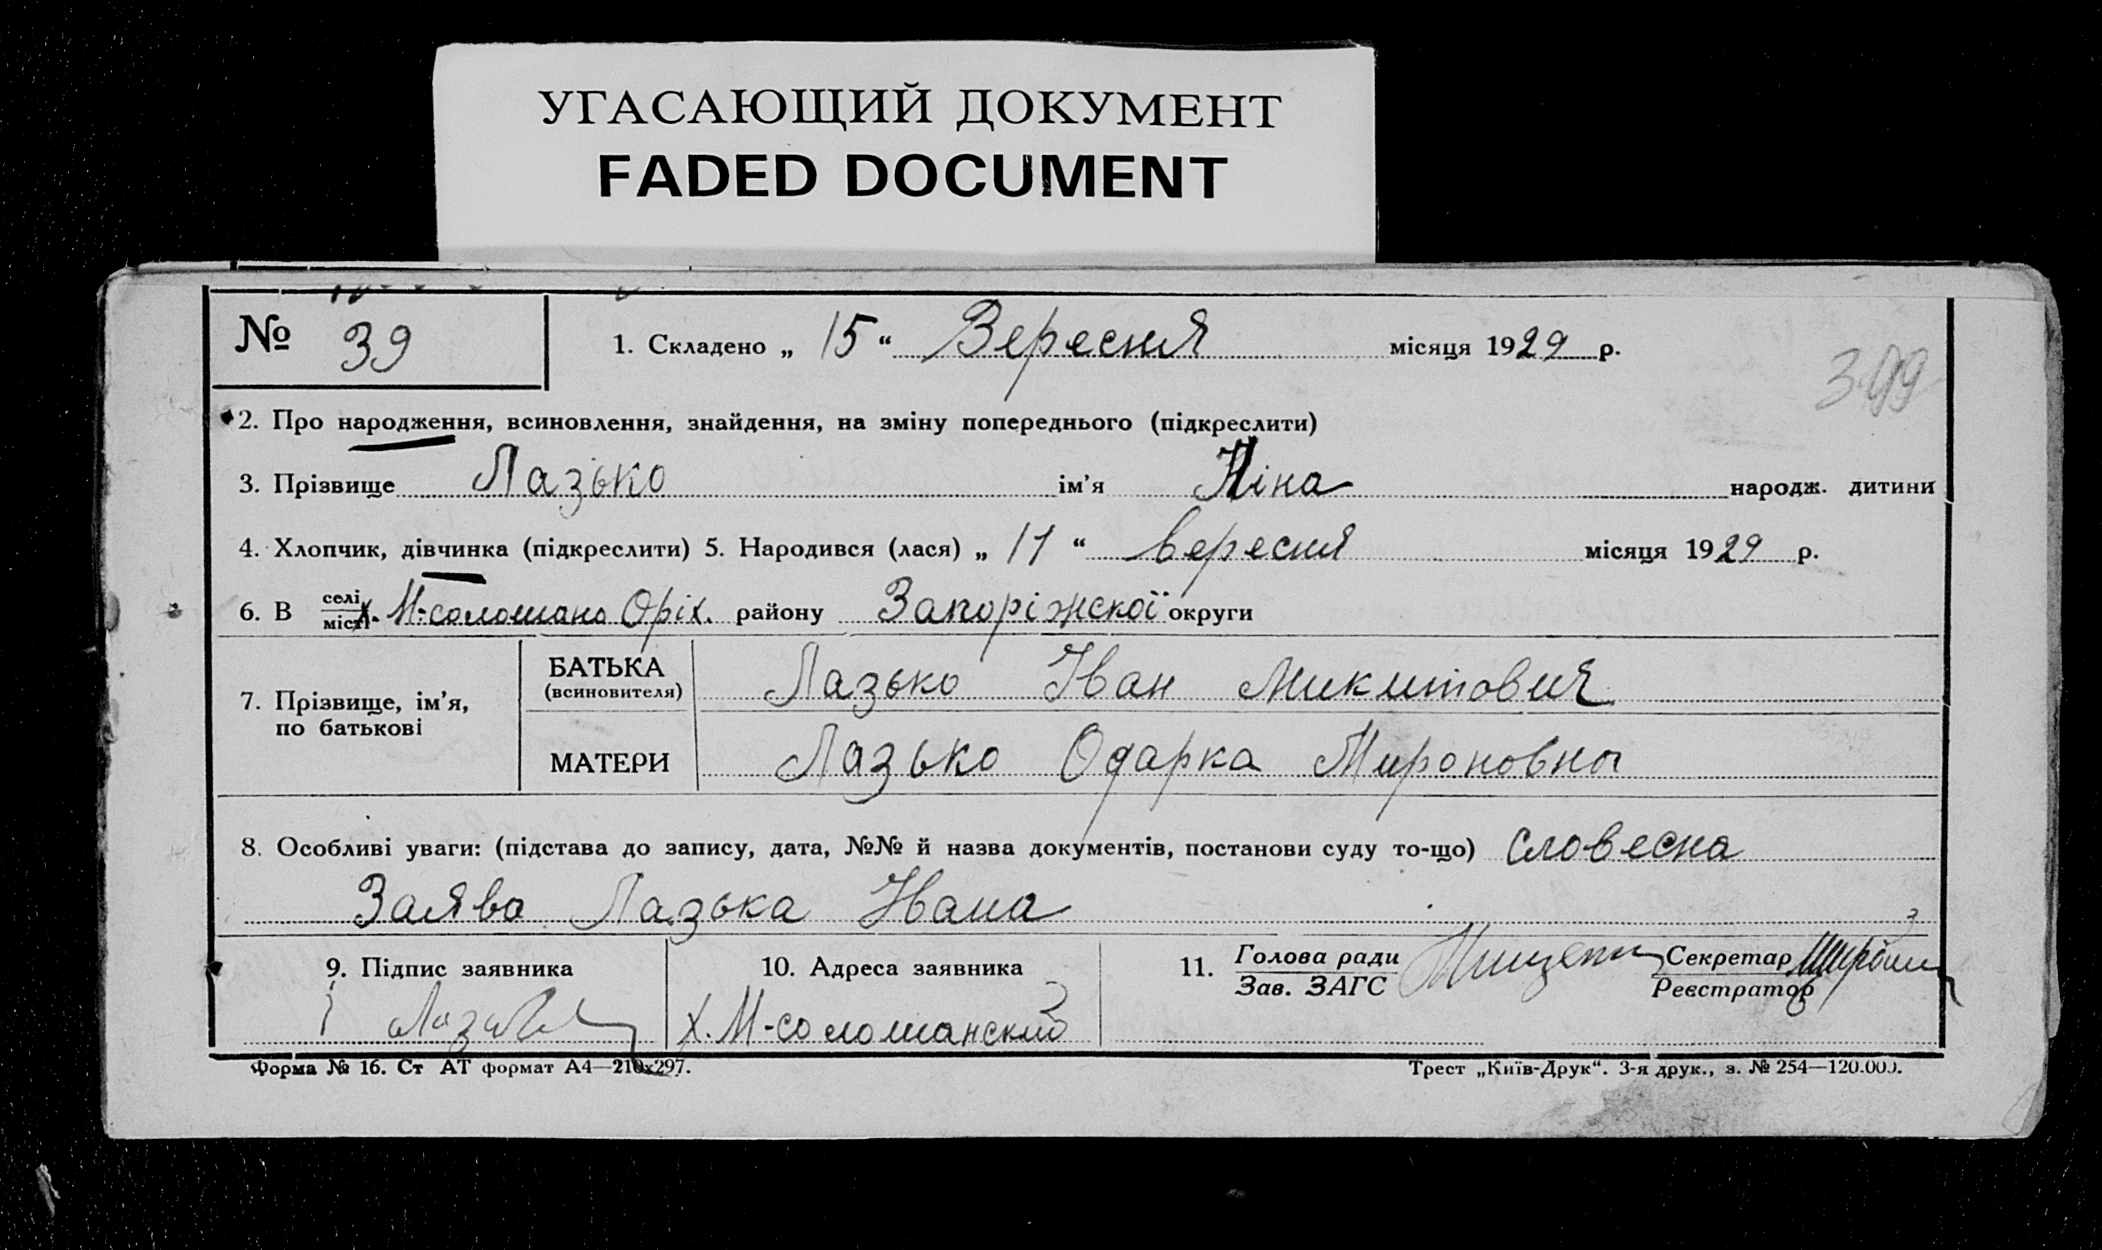 УГАСАЮЩИЙ ДОКУМЕНТ
FADED DOCUMENT
№ 39
1. Складено „ 15 “ Вересня місяця 1929 р.
399
2. Про народження, всиновлення, знайдення, на зміну попереднього (підкреслити)
3. Прізвище Лазько ім’я Ніна народж. дитини
4. Хлопчик, дівчинка (підкреслити) 5. Народився (лася) „ 11 “ вересня місяця 1929 р.
6. В селі місті х. М-соломано Оріх. району Запоріжскої округи
7. Прізвище, ім’я, по батькові
БАТЬКА (всиновителя) Лазько Іван Микитович
МАТЕРИ Лазько Одарка Мироновна
8. Особливі уваги: (підстава до запису, дата, №№ й назва документів, постанови суду то-що) Словесна
Заява Лазька Івана
9. Підпис заявника
10. Адреса заявника
х. М-соломанский
11. Голова ради Зав. ЗАГС
Секретар Реєстратор
Форма № 16. Ст АТ формат А4—210х297.
Трест „Київ-Друк“. 3-я друк., з. № 254—120.000.